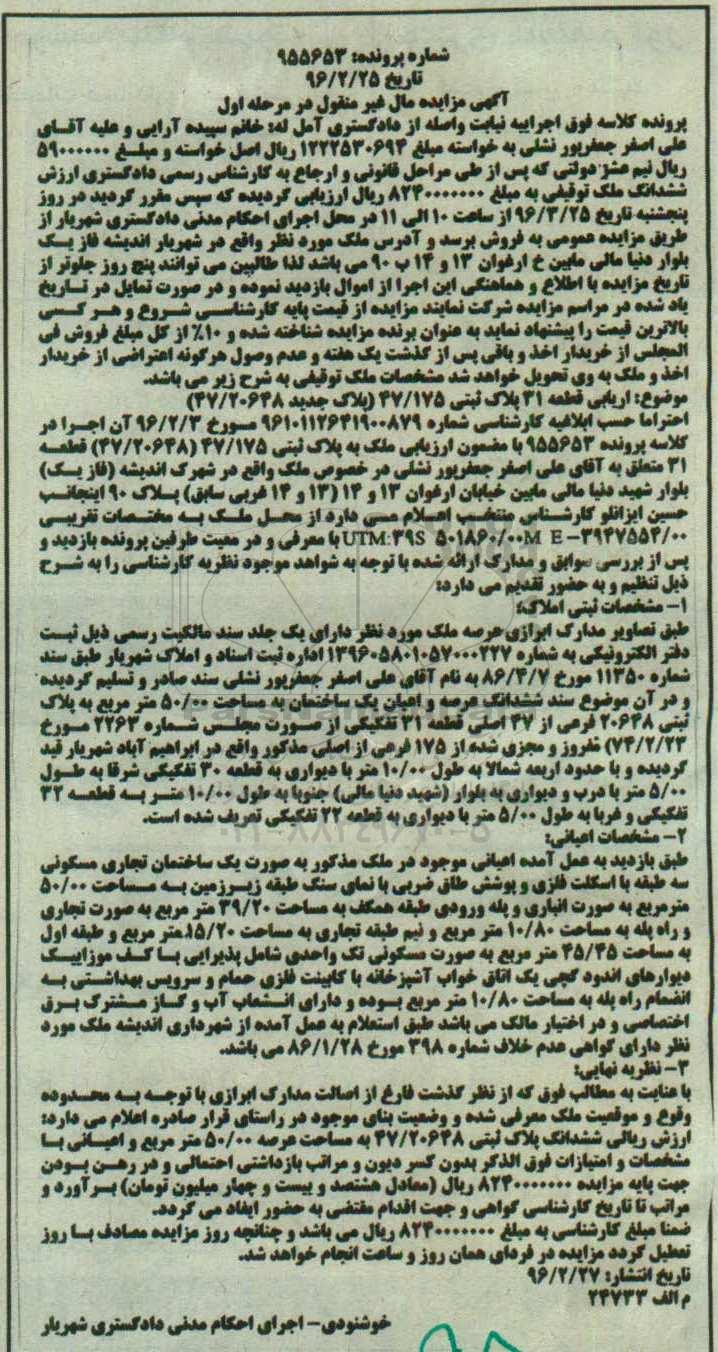 شماره پرونده: ۹۵۵۶۵۳
تاریخ ۹۶/۲/۲۵
آگهی مزایده مال غیر منقول در مرحله اول
پرونده کلاسه فوق اجراییه نیابت واصله از دادگستری آمل له: خانم سپیده آرایی و علیه آقـای
علی اصغر جعفرپور نشلی به خواسته مبلغ ۱۲۲۲۵۳۰۶۹۴ ریال اصل خواسته و مبلـغ ۵۹۰۰۰۰۰۰
ریال نیم عشر دولتی که پس از طی مراحل قانونی و ارجاع به کارشناس رسمی دادگستری ارزش
ششدانگ ملک توقیفی به مبلغ ۸۲۴۰۰۰۰۰۰۰ ریال ارزیابی گردیده که سپس مقرر گردید در روز
پنجشنبه تاریخ ۹۶/۳/۲۵ از ساعت ۱۰ الی ۱۱ در محل اجرای احکام مدنی دادگستری شهریار از
طریق مزایده عمومی به فروش برسد و آدرس ملک مورد نظر واقع در شهریار اندیشه فاز یـک
بلوار دنیا مالی مابین خ ارغوان ۱۳ و ۱۴ پ ۹۰ می باشد لذا طالبین می توانند پنج روز جلوتر از
تاریخ مزایده با اطلاع و هماهنگی این اجرا از اموال بازدید نموده و در صورت تمایل در تـاریخ
یاد شده در مراسم مزایده شرکت نمایند مزایده از قیمت پایه کارشناسـی شـروع و هـر کـسی
بالاترین قیمت را پیشنهاد نماید به عنوان برنده مزایده شناخته شده و ۱۰٪ از کل مبلغ فروش فی
المجلس از خریدار اخذ و باقی پس از گذشت یک هفته و عدم وصول هرگونه اعتراضی از خریدار
اخذ و ملک به وی تحویل خواهد شد مشخصات ملک توقیفی به شرح زیر می باشد.
موضوع: اریابی قطعه ۳۱ پلاک ثبتی ۴۷/۱۷۵ (پلاک جدید ۴۷/۲۰۶۴۸)
احتراما حسب ابلاغیه کارشناسی شماره ۹۶۱۰۱۱۲۶۴۱۹۰۰۸۷۹ مـورخ ۹۶/۲/۳ آن اجـرا در
کلاسه پرونده ۹۵۵۶۵۳ با مضمون ارزیابی ملک به پلاک ثبتی ۴۷/۱۷۵ (۴۷/۲۰۶۴۸) قطعـه
۳۱ متعلق به آقای علی اصغر جعفرپور نشلی در خصوص ملک واقع در شهرک اندیشه (فاز یـک)
بلوار شهید دنیا مالی مابین خیابان ارغوان ۱۳ و ۱۴ (۱۳ و ۱۴ غربی سابق) پـلاک ۹۰ اینجانـب
حسین ایزانلو کارشـناس منتخـب اعـلام مـی دارد از محـل ملـک بـه مختـصات تقریبـی
UTM:۳۹S ۵۰۱۸۶۰/۰۰M E -۳۹۴۷۵۵۴/۰۰ با معرفی و در معیت طرفین پرونده بازدید و
پس از بررسی سوابق و مدارک ارائه شده با توجه به شواهد موجود نظریه کارشناسی را به شـرح
ذیل تنظیم و به حضور تقدیم می دارد:
۱- مشخصات ثبتی املاک:
طبق تصاویر مدارک ابرازی عرصه ملک مورد نظر دارای یک جلد سند مالکیت رسمی ذیل ثبـت
دفتر الکترونیکی به شماره ۱۳۹۶۰۵۸۰۱۰۵۷۰۰۰۲۲۷ اداره ثبت اسناد و املاک شهریار طبق سند
شماره ۱۱۳۵۰ مورخ ۸۶/۴/۷ به نام آقای علی اصغر جعفرپور نشلی سند صادر و تسلیم گردیده
و در آن موضوع سند ششدانگ عرصه و اعیان یک ساختمان به مساحت ۵۰/۰۰ متر مربع به پلاک
ثبتی ۲۰۶۴۸ فرعی از ۴۷ اصلی قطعه ۳۱ تفکیکی از صـورت مجلـس شـماره ۲۲۶۳ مـورخ
۷۴/۲/۲۳) مفروز و مجزی شده از ۱۷۵ فرعی از اصلی مذکور واقع در ابراهیم آباد شهریار قید
گردیده و با حدود اربعه شمالا به طول ۱۰/۰۰ متر با دیواری به قطعه ۳۰ تفکیکی شرقا به طـول
۵/۰۰ متر با درب و دیواری به بلوار (شهید دنیا مالی) جنوبا به طول ۱۰/۰۰ متـر بـه قطعـه ۳۲
تفکیکی و غربا به طول ۵/۰۰ متر با دیواری به قطعه ۲۲ تفکیکی تعریف شده است.
۲- مشخصات اعیانی:
طبق بازدید به عمل آمده اعیانی موجود در ملک مذکور به صورت یک ساختمان تجاری مسکونی
سه طبقه با اسکلت فلزی و پوشش طاق ضربی با نمای سنگ طبقه زیـرزمین بـه مـساحت ۵۰/۰۰
مترمربع به صورت انباری و پله ورودی طبقه همکف به مساحت ۳۹/۲۰ متر مربع به صورت تجاری
و راه پله به مساحت ۱۰/۸۰ متر مربع و نیم طبقه تجاری به مساحت ۱۵/۲۰ متر مربع و طبقه اول
به مساحت ۴۵/۴۵ متر مربع به صورت مسکونی تک واحدی شامل پذیرایی بـا کـف موزاییـک
دیوارهای اندود گچی یک اتاق خواب آشپزخانه با کابینت فلزی حمام و سرویس بهداشـتی بـه
انضمام راه پله به مساحت ۱۰/۸۰ متر مربع بـوده و دارای انـشعاب آب و گـاز مـشترک بـرق
اختصاصی و در اختیار مالک می باشد طبق استعلام به عمل آمده از شهرداری اندیشه ملک مورد
نظر دارای گواهی عدم خلاف شماره ۳۹۸ مورخ ۸۶/۱/۲۸ می باشد.
۳- نظریه نهایی:
با عنایت به مطالب فوق که از نظر گذشت فارغ از اصالت مدارک ابرازی با توجـه بـه محـدوده
وقوع و موقعیت ملک معرفی شده و وضعیت بنای موجود در راستای قرار صادره اعلام می دارد:
ارزش ریالی ششدانگ پلاک ثبتی ۴۷/۲۰۶۴۸ به مساحت عرصه ۵۰/۰۰ متر مربع و اعیـانی بـا
مشخصات و امتیازات فوق الذکر بدون کسر دیون و مراتب بازداشتی احتمالی و در رهـن بـودن
جهت پایه مزایده ۸۲۴۰۰۰۰۰۰۰ ریال (معادل هشتصد و بیست و چهار میلیون تومان) بـرآورد و
مراتب تا تاریخ کارشناسی گواهی و جهت اقدام مقتضی به حضور ایفاد می گردد.
ضمنا مبلغ کارشناسی به مبلغ ۸۲۴۰۰۰۰۰۰۰ ریال می باشد و چنانچه روز مزایده مصادف بـا روز
تعطیل گردد مزایده در فردای همان روز و ساعت انجام خواهد شد.
تاریخ انتشار: ۹۶/۲/۲۷
م الف ۲۴۷۳۳
خوشنودی- اجرای احکام مدنی دادگستری شهریار